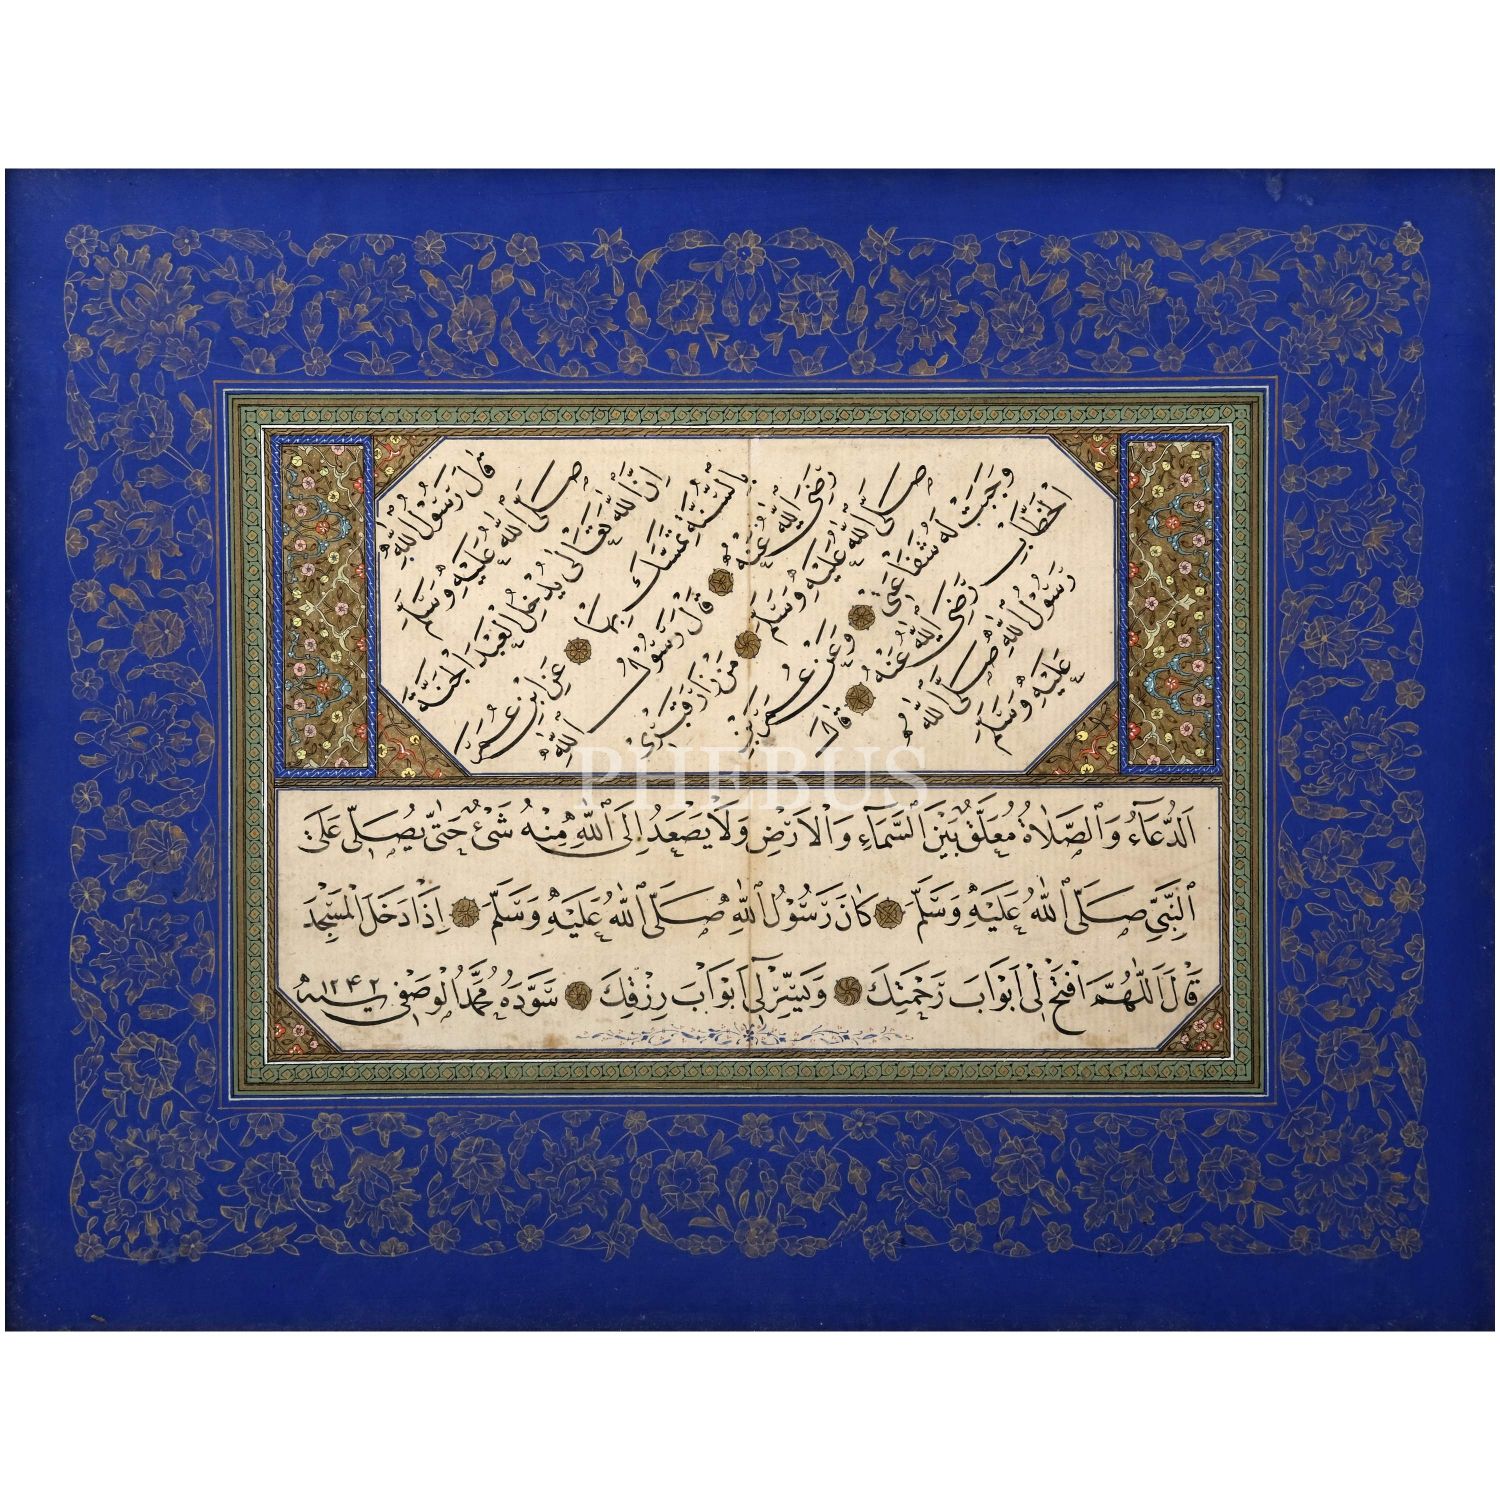 قَالَ رَسُولُ اللّٰهِ
صَلَّى اللّٰهُ عَلَيْهِ وَسَلَّمَ
اِنَّ اللّٰهَ تَعَالٰى يُدْخِلُ الْعَبْدَ الْجَنَّةَ
بِالسُّنَّةِ تَمَسَّكَ بِهَا عَنِ ابْنِ عُمَرَ
رَضِىَ اللّٰهُ عَنْهُ قَالَ رَسُولُ اللّٰهِ
صَلَّى اللّٰهُ عَلَيْهِ وَسَلَّمَ مَنْ زَارَ قَبْرِى
وَجَبَتْ لَهُ شَفَاعَتِى وَعَنْ عُمَرَ بْنِ
الْخَطَّابِ رَضِىَ اللّٰهُ عَنْهُ قَالَ
رَسُولُ اللّٰهِ صَلَّى اللّٰهُ
عَلَيْهِ وَسَلَّمَ
PHEBUS
اَلدُّعَآءُ وَالصَّلَاةُ مُعَلَّقٌ بَيْنَ السَّمَآءِ وَالْاَرْضِ وَلَا يَصْعَدُ اِلَى اللّٰهِ مِنْهُ شَىْءٌ حَتّٰى يُصَلّٰى عَلَى
النَّبِىِّ صَلَّى اللّٰهُ عَلَيْهِ وَسَلَّمَ كَانَ رَسُولُ اللّٰهِ صَلَّى اللّٰهُ عَلَيْهِ وَسَلَّمَ اِذَا دَخَلَ الْمَسْجِدَ
قَالَ اَللّٰهُمَّ افْتَحْ لِى اَبْوَابَ رَحْمَتِكَ وَيَسِّرْ لِى اَبْوَابَ رِزْقِكَ سَوَّدَهُ مُحَمَّدُ الْوَصْفِى سنه ١٢٤٢